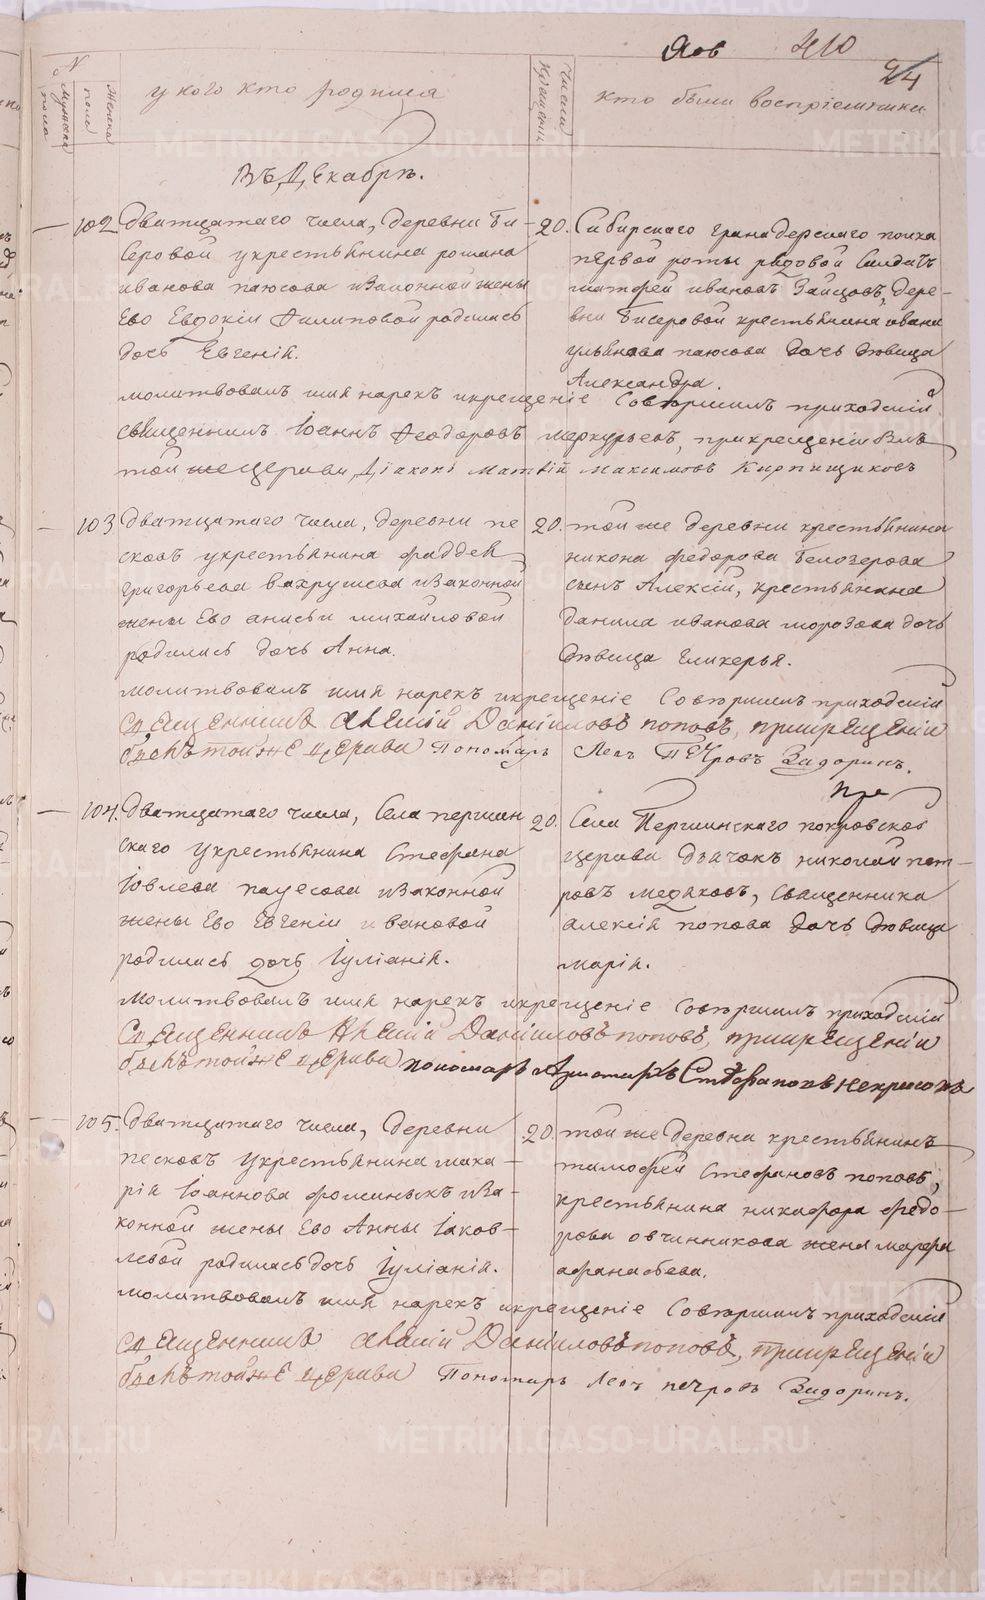 410
24
№
Мужеска пола
Женска пола
у кого кто родился
Числа крещения
кто были восприемники
Въ Декабрѣ.
102 Дватцатаго числа, деревни Би-
серовой укрестьянина романа
иванова паюсова изаконной жены
Ево Евдокіи Филиповой родилась
дочь Евгенія.
20. Сибирскаго гранадерскаго полка
первой роты рядовой Салдатъ
матфей ивановъ Зайцовъ, дере-
вни Бисеровой крестьянина ивана
ульянова паюсова дочь дѣвица
Александра.
молитвовалъ имя нарекъ икрещеніе Совершилъ приходскій
священникъ Іоаннъ Феодоровъ меркурьевъ, прикрещеніи былъ
той же церкви Діаконъ Матвій Максимовъ Кирпищиковъ
103 Дватцатаго числа, деревни пе
сковъ укрестьянина фаддея
григорьева вахрушева изаконной
жены Ево анисьи михаиловой
родилась дочь Анна.
20. той же деревни крестьянина
никона федорова белозерова
сынъ Алексій, крестьянина
данила иванова морозова дочь
дѣвица гликерья.
молитвовалъ имя нарекъ икрещеніе Совершилъ приходскій
Священникъ Алексій Даніиловъ поповъ, прикрещеніи
былъ тойже церкви Пономарь Левъ Петровъ Задоринъ.
104. Дватцатаго числа, Села першин
скаго укрестьянина Стефана
Іовлева паусова изаконной
жены Ево Евгеніи ивановой
родилась дочь Іуліанія.
20. Села Першинскаго покровской
церкви дьячокъ николай пет-
ровъ медяковъ, Священника
алексія попова дочь дѣвица
марія.
молитвовалъ имя нарекъ икрещеніе Совершилъ приходскій
Священникъ Алексій Даніиловъ поповъ, прикрещеніи
былъ тойже церкви пономарь Аристархъ Стефановъ некрасовъ
105. Дватцатаго числа, деревни
песковъ укрестьянина мака-
рія Іоаннова фоминыхъ иза-
конной жены Ево Анны Іаков-
левой родилась дочь Іуліанія.
20. той же деревни крестьянинъ
тимофей Стефановъ поповъ,
крестьянина никифора федо-
рова овчинникова жена марфа
афанасьева.
молитвовалъ имя нарекъ икрещеніе Совершилъ приходскій
Священникъ Алексій Даніиловъ поповъ, прикрещеніи
былъ тойже церкви Пономарь Левъ петровъ Задоринъ.
METRIKI.GASO-URAL.RU